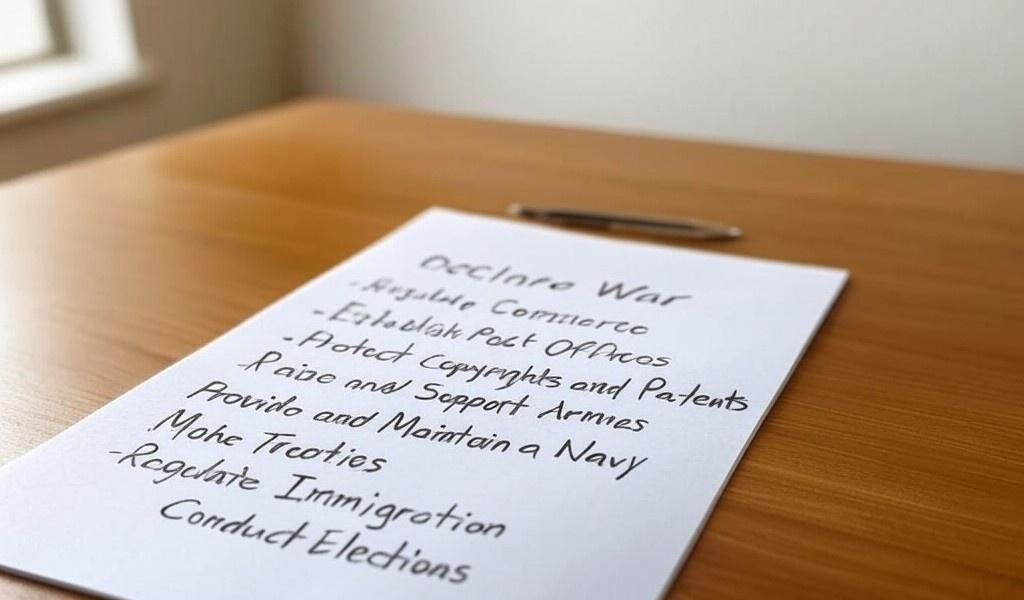 Declare War
- Regulate Commerce
- Establish Post Offices
- Protect Copyrights and Patents
- Raise and Support Armies
Provide and Maintain a Navy
Make Treaties
- Regulate Immigration
Conduct Elections